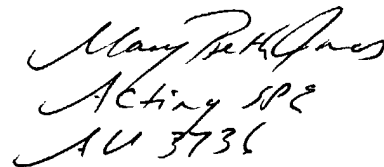 Mary Beth Jones
Acting SPE
AU 3736